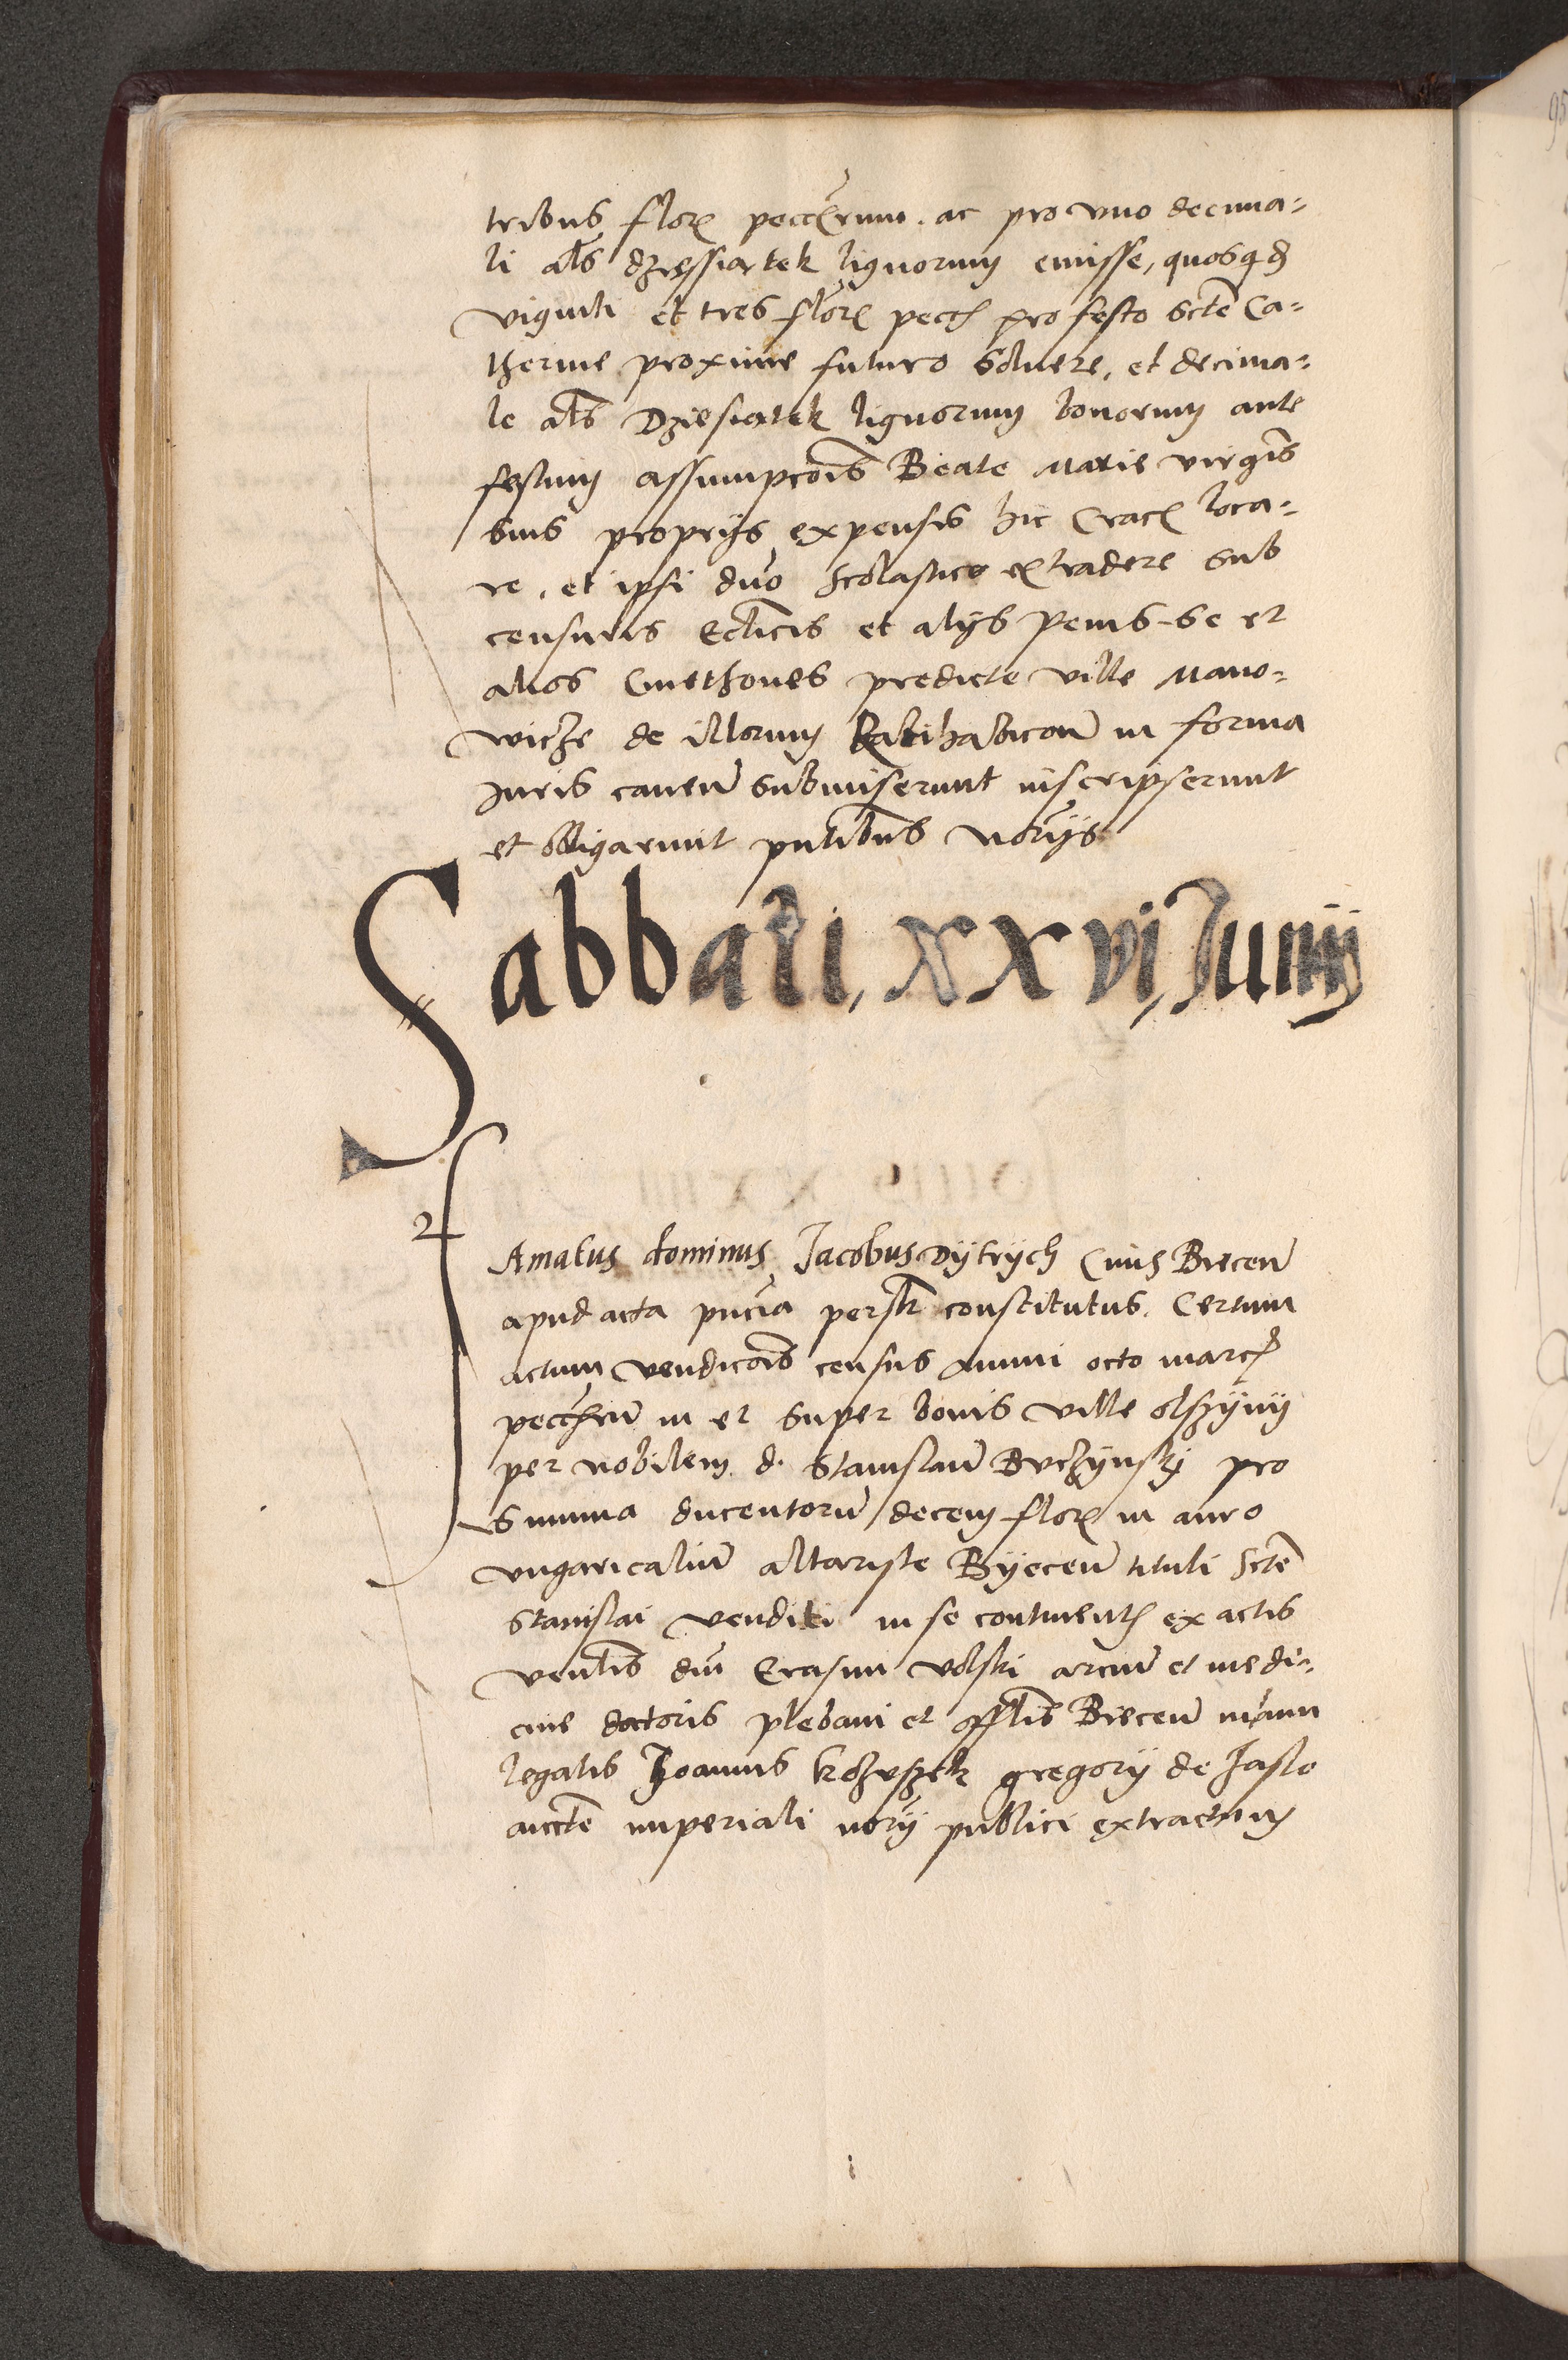 tribus flor pecc̄rum. ac pro vno decima-
li al̄s dzyessiatek lignorum emisse, quosq̄d
viginti et tres flor pecc pro festo Sctē Ca-
therine proxime futuro Soluere, et decima-
le al̄s Dziesiatek lignorum bonorum ante
festum assumpcōis Beate Marie virgīs
suis proprijs expensis hic Crac loca-
re, et ipsi dūo Scolastico extradere sub
censuris Ecl̄icis et alijs penis se et
alios Cmethones predicte ville Mano-
wicze de illorum Ratihabicōn̄ in forma
Juris caueñ submiserunt inscripserunt
et obligarunt pn̄tibus nōrijs
Sabbati, xxvi, Junij
2
Famatus dominus Jacobus Dÿtrÿch Ciuis Bieceñ
apud acta pn̄cia persl̄r constitutus. Certum
actum vendicōis census annui octo marc
pecc̄hrū in et super bonis ville olszÿnÿ
per nobilem d. Stanislaū Buczÿnskÿ pro
summa ducentorū decem flor in auro
vngaricaliū altariste Bÿeceñ tituli Sctī
Stanislai venditi in se continenť ex actis
ven̄lis dn̄i Erasmi volski arciū et medi-
cine doctoris plebani et offl̄is Bieceñ manu
legalis Joannis kozuszek gregorij de Jaslo
auctē imperiali nōrij publici extractum